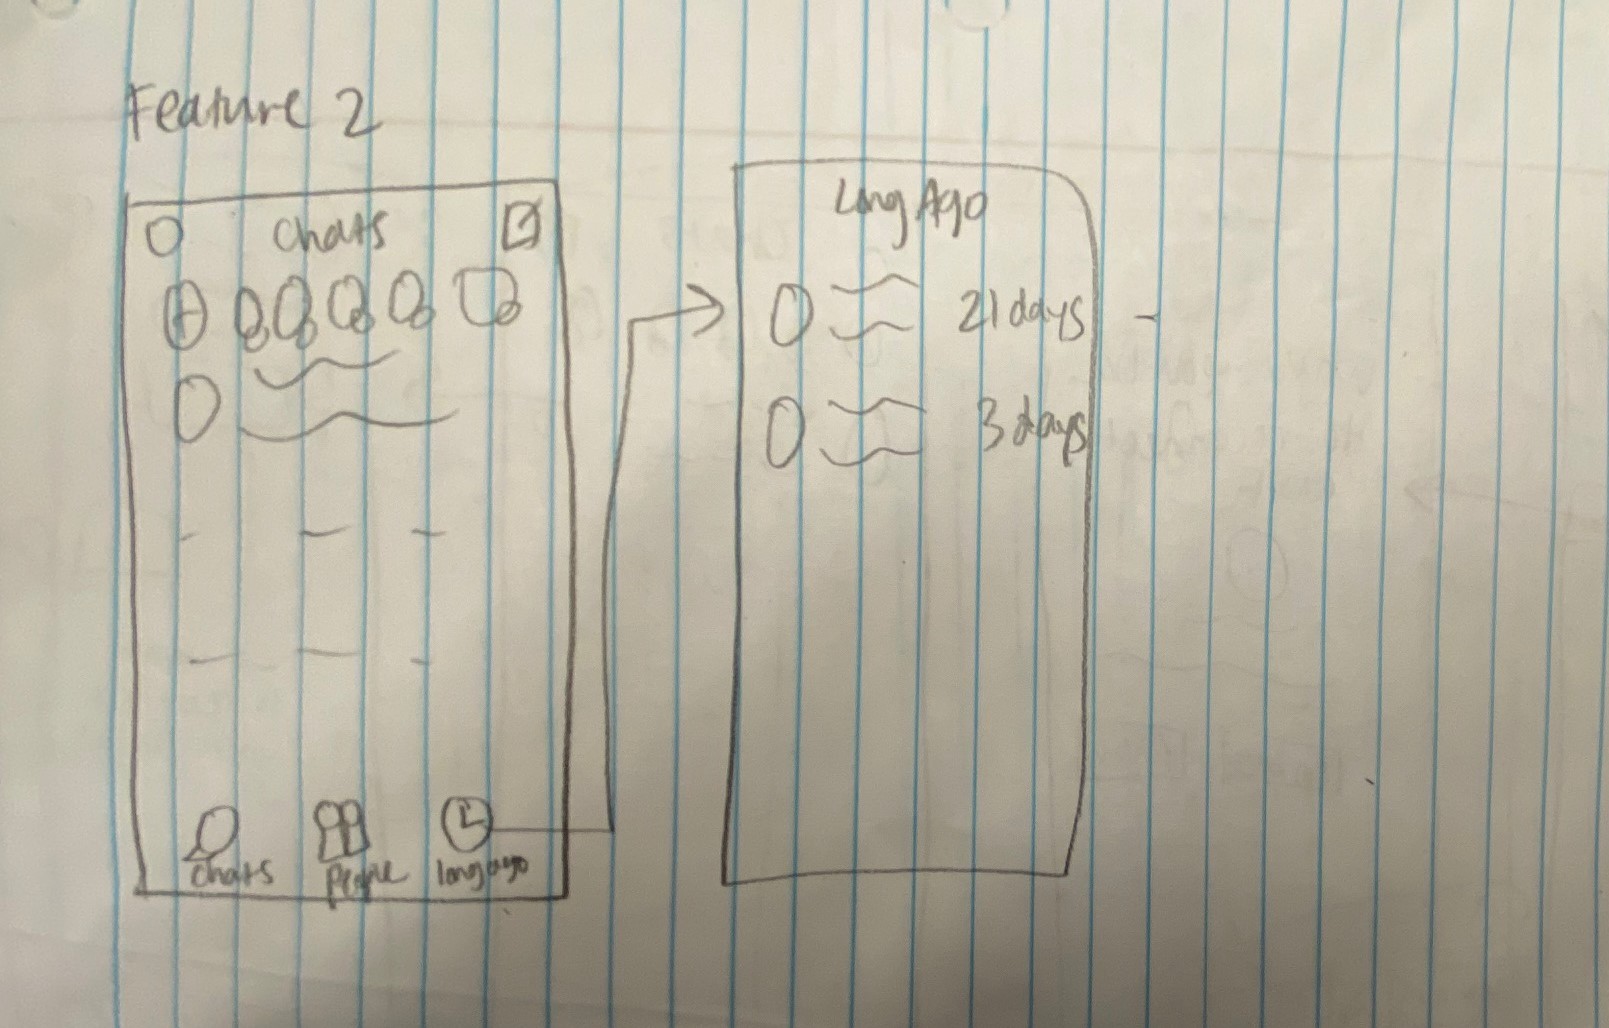 Feature 2
Chats
Chats
People
long ago
Long Ago
21 days
3 days